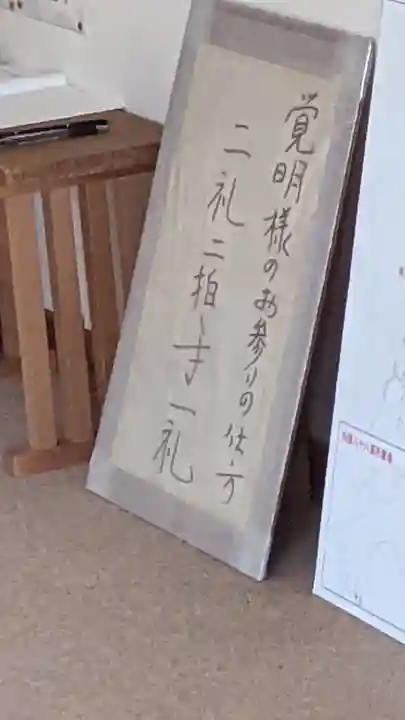 覚明様のお参りの仕方
二礼二拍手一礼